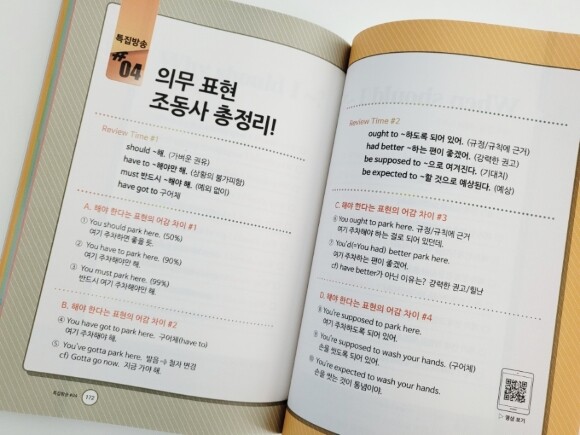 특집방송
#04
의무 표현
조동사 총정리!
Review Time #1
should ~해. (가벼운 권유)
have to ~해야만 해. (상황의 불가피함)
must 반드시 ~해야 해. (예외 없이)
have got to 구어체
A. 해야 한다는 표현의 어감 차이 #1
① You should park here. (50%)
여기 주차하면 좋을 듯.
② You have to park here. (90%)
여기 주차해야만 해.
③ You must park here. (99%)
반드시 여기 주차해야만 해.
B. 해야 한다는 표현의 어감 차이 #2
④ You have got to park here. 구어체(have to)
여기 주차해야 해.
⑤ You've gotta park here. 발음→ 철자 변경
cf) Gotta go now. 지금 가야 해.
특집방송 #04
112
Review Time #2
ought to ~하도록 되어 있어. (규정/규칙에 근거)
had better ~하는 편이 좋겠어. (강력한 권고)
be supposed to ~으로 여겨진다. (기대치)
be expected to ~할 것으로 예상된다. (예상)
C. 해야 한다는 표현의 어감 차이 #3
⑥ You ought to park here. 규정/규칙에 근거
여기 주차해야 하는 걸로 되어 있던데.
⑦ You'd(=You had) better park here.
여기 주차하는 편이 좋겠어.
cf) have better가 아닌 이유는? 강력한 권고/힐난
D. 해야 한다는 표현의 어감 차이 #4
⑧ You're supposed to park here.
여기 주차하도록 되어 있어.
⑨ You're supposed to wash your hands. (구어체)
손을 씻도록 되어 있어.
⑩ You're expected to wash your hands.
손을 씻는 것이 통념이야.
▷ 영상 보기